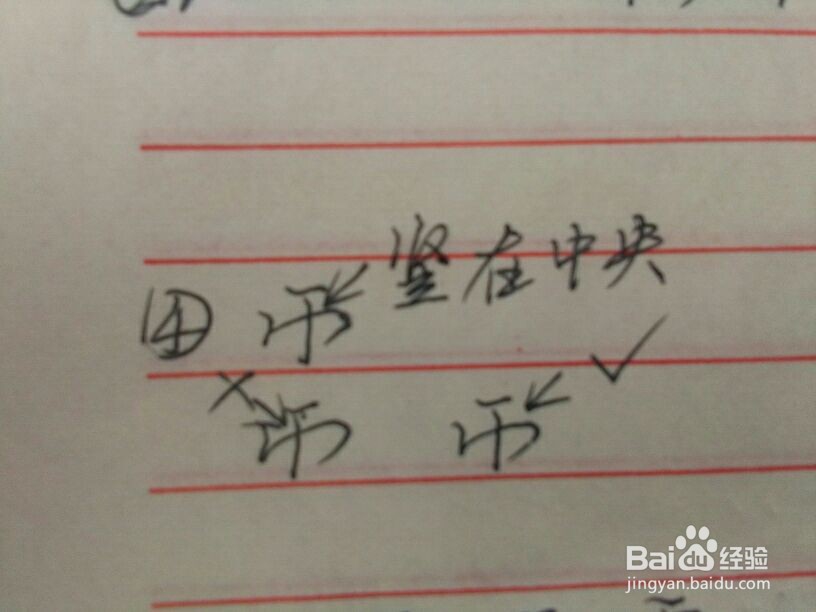 ④ 竖在中央
×
✓
Baidu经验
jingyan.baidu.com